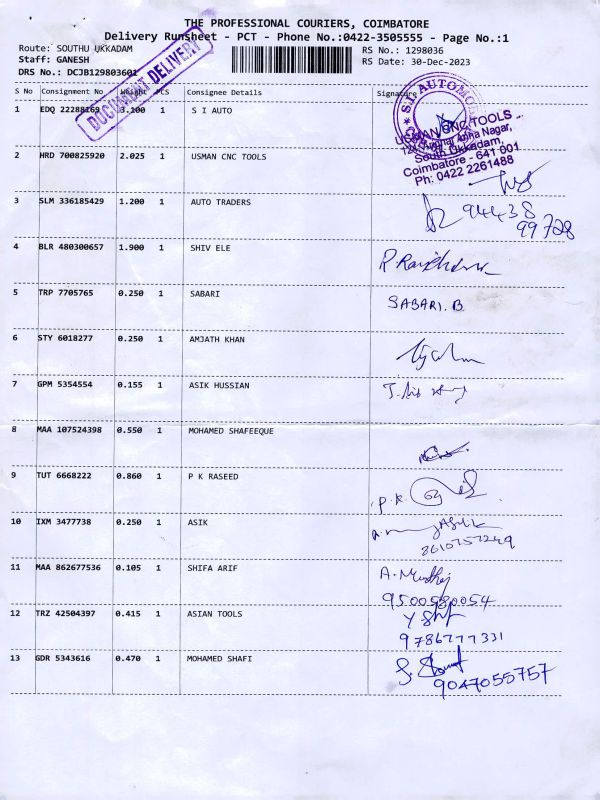 THE PROFESSIONAL COURIERS, COIMBATORE
Delivery Runsheet - PCT - Phone No.:0422-3505555 - Page No.:1
Route: SOUTHU UKKADAM
RS No.: 1298036
Staff: GANESH
RS Date: 30-Dec-2023
DRS No.: DCJB129803601
DOCUMENT DELIVERY
S No Consignment No Weight PCS Consignee Details Signature
1 EDQ 22288169 3.100 1 S I AUTO
S.I. AUTOMO
USMAN CNC TOOLS
Anna Nagar,
South Ukkadam,
Coimbatore - 641 001
Ph: 0422 2261488
2 HRD 700825920 2.025 1 USMAN CNC TOOLS
3 SLM 336185429 1.200 1 AUTO TRADERS
94438
99728
4 BLR 480300657 1.900 1 SHIV ELE
5 TRP 7705765 0.250 1 SABARI
SABARI. B
6 STY 6018277 0.250 1 AMJATH KHAN
7 GPM 5354554 0.155 1 ASIK HUSSIAN
8 MAA 107524398 0.550 1 MOHAMED SHAFEEQUE
9 TUT 6668222 0.860 1 P K RASEED
P.K.
10 IXM 3477738 0.250 1 ASIK
11 MAA 862677536 0.105 1 SHIFA ARIF
9500580054
12 TRZ 42504397 0.415 1 ASIAN TOOLS
9786777331
13 GDR 5343616 0.470 1 MOHAMED SHAFI
9047055757